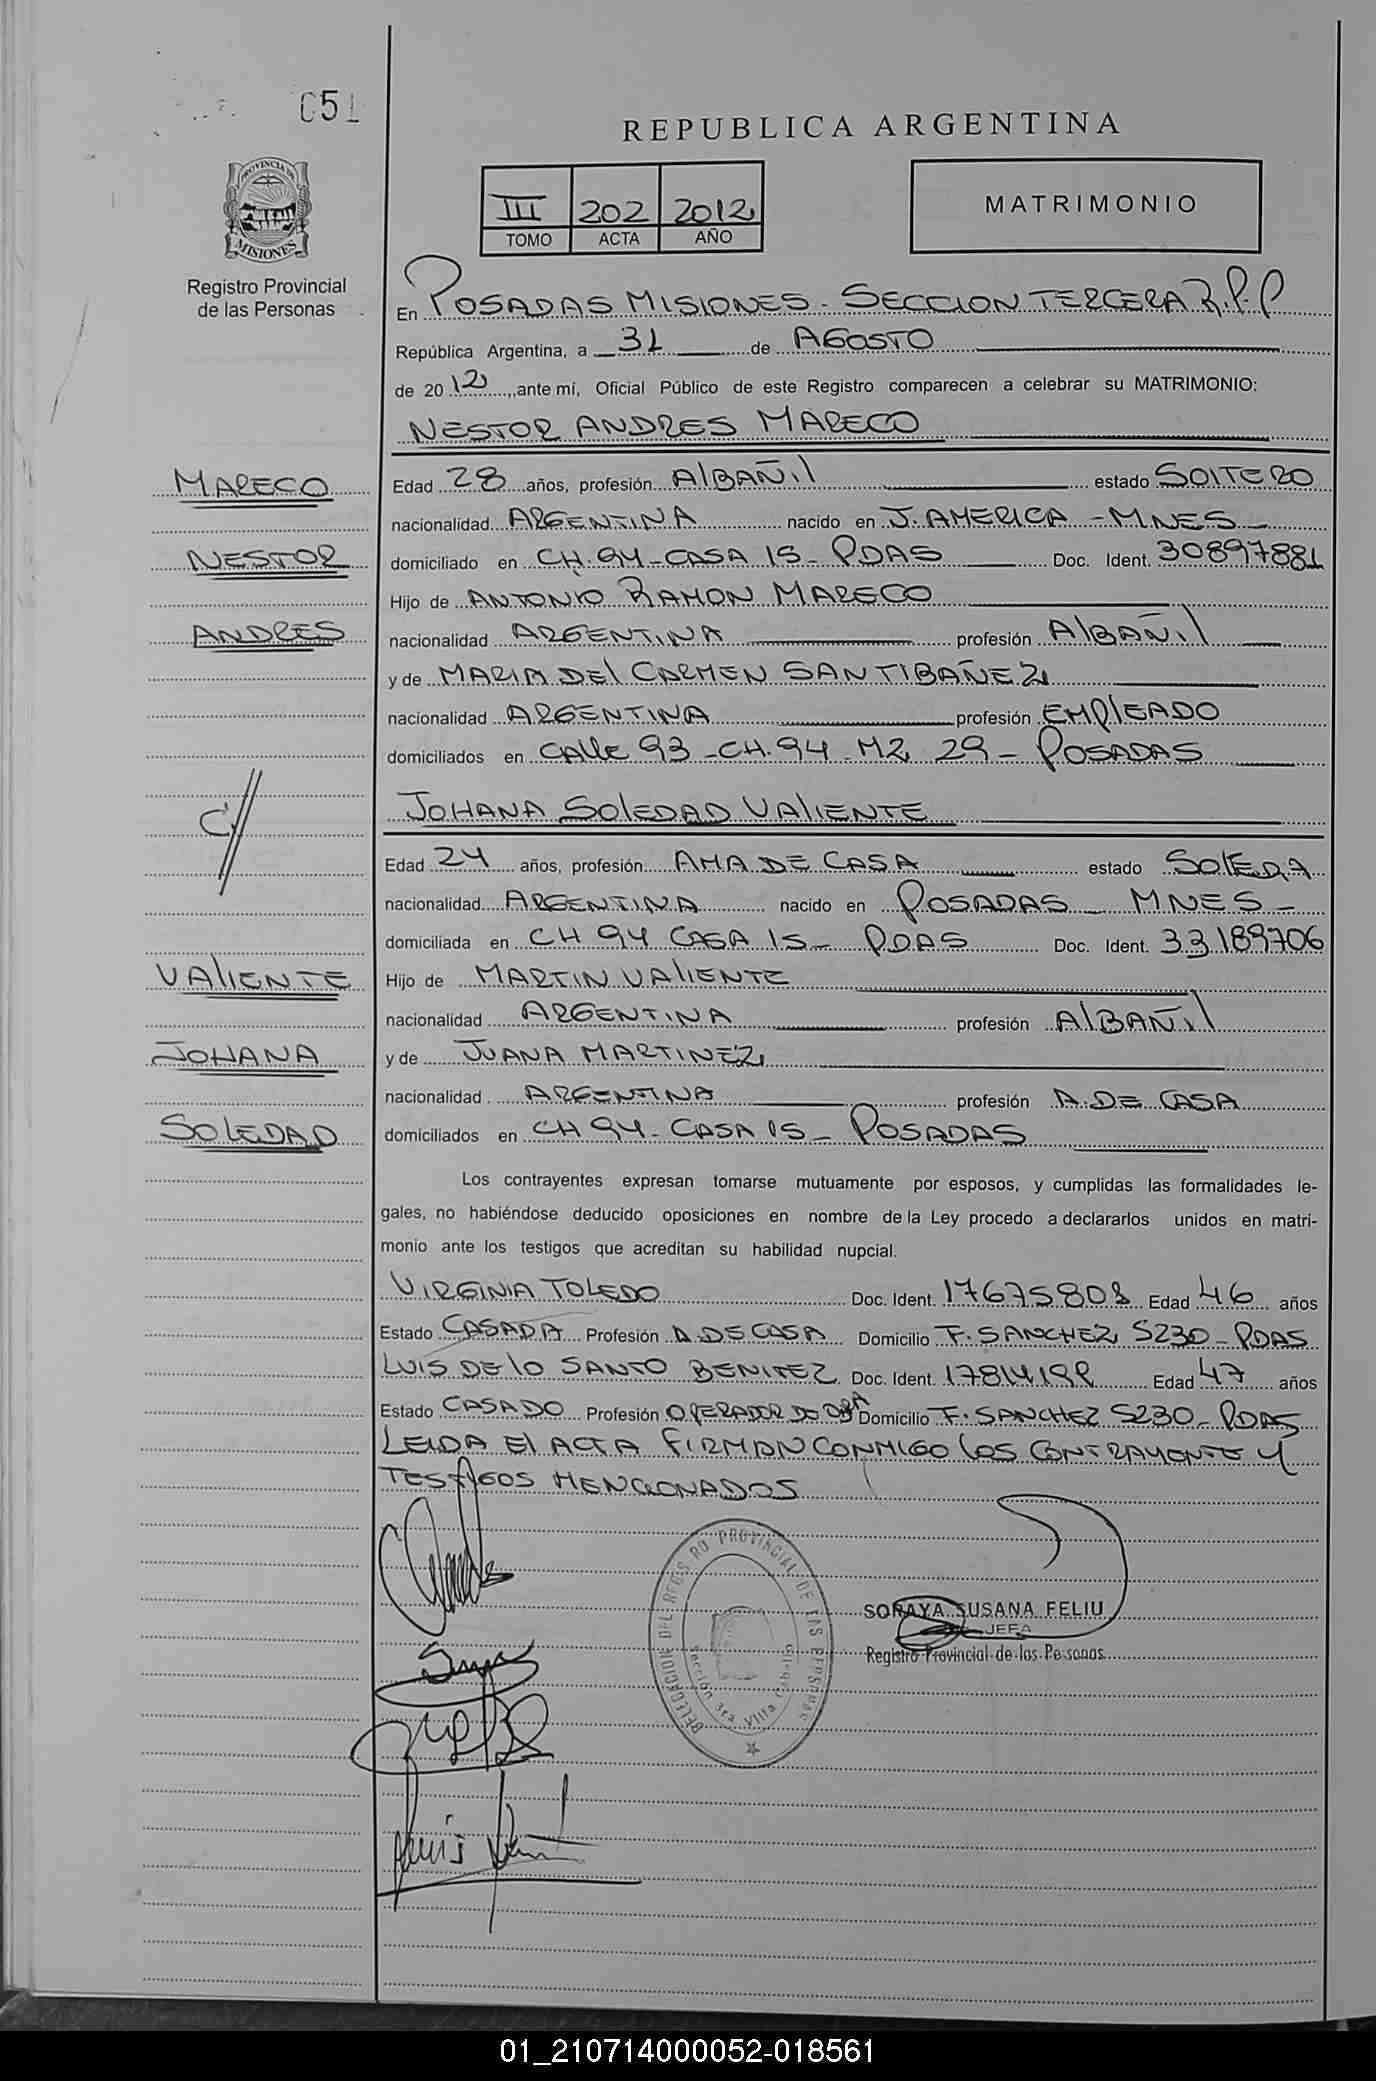 051
REPUBLICA ARGENTINA
PROVINCIA DE MISIONES
Registro Provincial
de las Personas
III 202 2012
TOMO ACTA AÑO
MATRIMONIO
En POSADAS MISIONES. SECCION TERCERA R.P.P
República Argentina, a 31 de AGOSTO
de 2012, ante mí, Oficial Público de este Registro comparecen a celebrar su MATRIMONIO:
NESTOR ANDRES MARECO
MARECO
NESTOR
ANDRES
Edad 28 años, profesión AlBAÑil estado SOlTERO
nacionalidad ARGENTINA nacido en J. AMERICA - MNES -
domiciliado en CH. 94 - CASA 15 - PDAS Doc. Ident. 30897881
Hijo de ANTONIO RAMON MARECO
nacionalidad ARGENTINA profesión AlBAÑil
y de MARIA DEl CARMEN SANTIBAÑEZ
nacionalidad ARGENTINA profesión EMPlEADO
domiciliados en CAlle 93 - CH. 94 - MZ 29 - POSADAS
C/
JOHANA SOlEDAD VAlIENTE
Edad 24 años, profesión AMA DE CASA estado SOlERA
nacionalidad ARGENTINA nacido en POSADAS MNES -
domiciliada en CH 94 CASA 15 - PDAS Doc. Ident. 33189706
VAlIENTE
JOHANA
SOLEDAD
Hijo de MARTIN VAlIENTE
nacionalidad ARGENTINA profesión AlBAÑil
y de JUANA MARTINEZ
nacionalidad ARGENTINA profesión A. DE CASA
domiciliados en CH 94 - CASA 15 - POSADAS
Los contrayentes expresan tomarse mutuamente por esposos, y cumplidas las formalidades le-
gales, no habiéndose deducido oposiciones en nombre de la Ley procedo a declararlos unidos en matri-
monio ante los testigos que acreditan su habilidad nupcial.
VIRGINIA TOLEDO Doc. Ident. 17675808 Edad 46 años
Estado CASADA Profesión A. DE CASA Domicilio F. SANCHEZ 5230 - PDAS
LUIS DE lO SANTO BENITEZ Doc. Ident. Edad 47 años
Estado CASADO Profesión OPERADOR DE OBRA Domicilio F. SANCHEZ 5230 - PDAS
LEIDA El ACTA FIRMAN CONMIGO los CONTRAYENTE Y
TESTIGOS MENCIONADOS
DELEGACION DEL REGISTRO PROVINCIAL DE LAS PERSONAS
Sección 3ra. Villa Cabello
SORAYA SUSANA FELIU
JEFA
Registro Provincial de las Personas
01_210714000052-018561